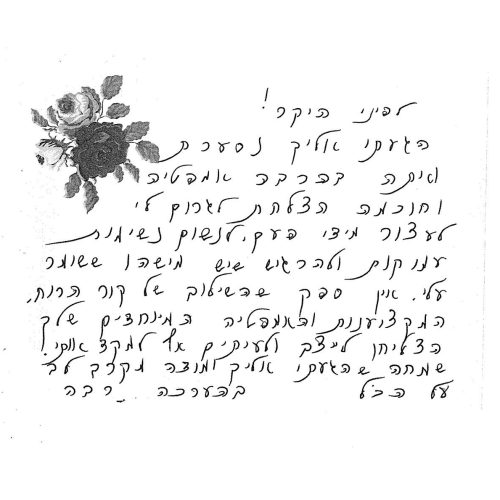 לפיני היקר!
הגעתי אליך נסערת
ואיתה בהרבה אמפטיה
וחוכמה הצלחת לגרום לי
לעצור מידי פעם, לנשום נשימות
עמוקות ולהרגיש שיש מישהו ששומר
עלי. אין ספק שהשילוב של קור הרוח,
המקצוענות והאמפטיה המינוחדים שלך
הצליחו לייצב ולעיתים אף למקצ אותי!
שמחה שהגעתי אליך ומודה מקרב לב
על הכל בהערכה רבה